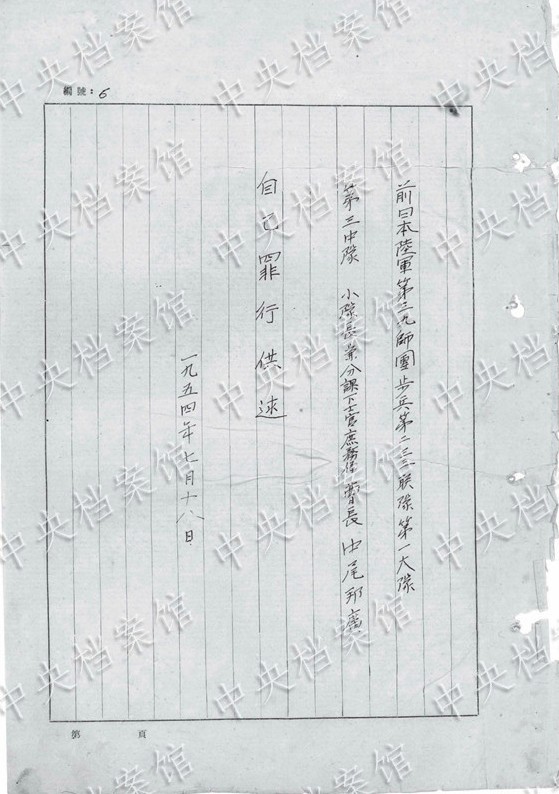 編號：6
前日本陸軍第三九師團步兵第二三三联隊第一大隊
第三中隊　小隊長兼分課下士官庶務係曹長　中尾邦廣
自己罪行供述
一九五四年七月十八日
第　頁
中央档案馆